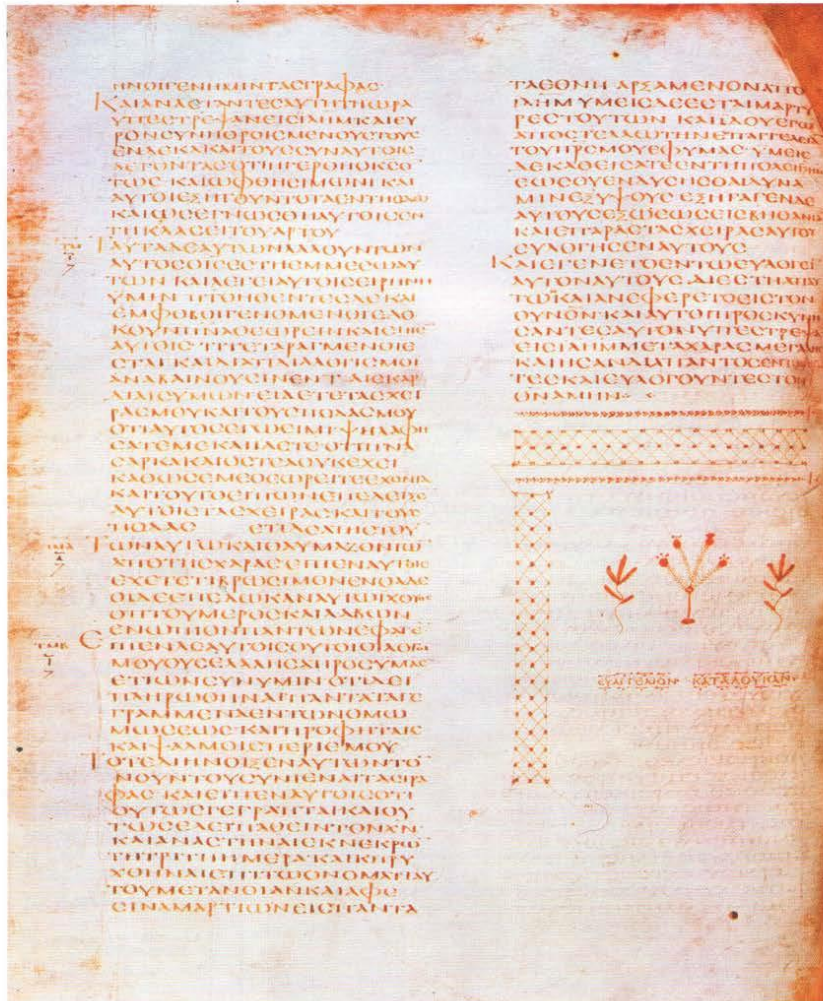 ΗΝΟΙΓΕΝΗΜΙΝΤΑϹΓΡΑΦΑϹ
ΚΑΙΑΝΑϹΤΑΝΤΕϹΑΥΤΗΤΗΩΡΑ
ΥΠΕϹΤΡΕΨΑΝΕΙϹΙΛΗΜΚΑΙΕΥ
ΡΟΝϹΥΝΗΘΡΟΙϹΜΕΝΟΥϹΤΟΥϹ
ΕΝΔΕΚΑΚΑΙΤΟΥϹϹΥΝΑΥΤΟΙϹ
ΛΕΓΟΝΤΑϹΟΤΙΗΓΕΡΘΗΟΚϹΟ
ΤΩϹ ΚΑΙΩΦΘΗϹΙΜΩΝΙΚΑΙ
ΑΥΤΟΙΕΞΗΓΟΥΝΤΟΤΑΕΝΤΗΟΔΩ
ΚΑΙΩϹΕΓΝΩϹΘΗΑΥΤΟΙϹΕΝ
ΤΗΚΛΑϹΕΙΤΟΥΑΡΤΟΥ
ΤΑΥΤΑΔΕΑΥΤΩΝΛΑΛΟΥΝΤΩΝ
ΑΥΤΟϹΟΙϹΕϹΤΗΕΜΜΕϹΩΑΥ
ΤΩΝ ΚΑΙΛΕΓΕΙΑΥΤΟΙϹΕΙΡΗΝΗ
ΥΜΙΝ ΠΤΟΗΘΕΝΤΕϹΔΕΚΑΙ
ΕΜΦΟΒΟΙΓΕΝΟΜΕΝΟΙΕΔΟ
ΚΟΥΝΠΝΑΘΕΩΡΕΙΝΚΑΙΕΙΠΕ
ΑΥΤΟΙϹ ΤΙΤΕΤΑΡΑΓΜΕΝΟΙΕ
ϹΤΑΙΚΑΙΔΙΑΤΙΔΙΑΛΟΓΙϹΜΟΙ
ΑΝΑΒΑΙΝΟΥϹΙΝΕΝΤΑΙϹΚΑΡ
ΔΙΑΙϹΥΜΩΝΕΙΔΕΤΕΤΑϹΧΕΙ
ΡΑϹΜΟΥΚΑΙΤΟΥϹΠΟΔΑϹΜΟΥ
ΟΤΙΑΥΤΟϹΕΓΩΕΙΜΙΨΗΛΑΦΗ
ϹΑΤΕΜΕΚΑΙΙΔΕΤΕΟΤΙΠΝΑ
ϹΑΡΚΑΚΑΙΟϹΤΕΑΟΥΚΕΧΕΙ
ΚΑΘΩϹΕΜΕΘΕΩΡΕΙΤΕΕΧΟΝΤΑ
ΚΑΙΤΟΥΤΟΕΙΠΩΝΕΠΕΔΕΙΞΕ
ΑΥΤΟΙϹΤΑϹΧΕΙΡΑϹΚΑΙΤΟΥϹ
ΠΟΔΑϹ ΕΤΙΔΕΑΠΙϹΤΟΥ
ΤΩΝΑΥΤΩΚΑΙΘΑΥΜΑΖΟΝΤΩ
ΑΠΟΤΗϹΧΑΡΑϹΕΙΠΕΝΑΥΤΟΙϹ
ΕΧΕΤΕΤΙΒΡΩϹΙΜΟΝΕΝΘΑΔΕ
ΟΙΔΕΕΠΕΔΩΚΑΝΑΥΤΩΙΧΘΥΟϹ
ΟΠΤΟΥΜΕΡΟϹΚΑΙΛΑΒΩΝ
ΕΝΩΠΙΟΝΠΑΝΤΩΝΕΦΑΓΕ
ΕΙΠΕΝΔΕΑΥΤΟΙϹΟΥΤΟΙΟΙΛΟΓΟΙ
ΜΟΥΟΥϹΕΛΑΛΗϹΑΠΡΟϹΥΜΑϹ
ΕΤΙΩΝϹΥΝΥΜΙΝΟΤΙΔΕΙ
ΠΛΗΡΩΘΗΝΑΙΠΑΝΤΑΤΑΓΕ
ΓΡΑΜΜΕΝΑΕΝΤΩΝΟΜΩ
ΜΩϹΕΩϹ ΚΑΙΠΡΟΦΗΤΑΙϹ
ΚΑΙΨΑΛΜΟΙϹΠΕΡΙΕΜΟΥ
ΤΟΤΕΔΙΗΝΟΙΞΕΝΑΥΤΩΝΤΟ
ΝΟΥΝΤΟΥϹΥΝΙΕΝΑΙΤΑϹΓΡΑ
ΦΑϹ ΚΑΙΕΙΠΕΝΑΥΤΟΙϹΟΤΙ
ΟΥΤΩϹΓΕΓΡΑΠΤΑΙΚΑΙΟΥ
ΤΩϹΕΔΕΙΠΑΘΕΙΝΤΟΝΧΝ
ΚΑΙΑΝΑϹΤΗΝΑΙΕΚΝΕΚΡΩ
ΤΗΤΡΙΤΗΗΜΕΡΑ ΚΑΙΚΗΡΥ
ΧΘΗΝΑΙΕΠΙΤΩΟΝΟΜΑΤΙΑΥ
ΤΟΥΜΕΤΑΝΟΙΑΝΚΑΙΑΦΕ
ϹΙΝΑΜΑΡΤΙΩΝΕΙϹΠΑΝΤΑ
ΤΑΕΘΝΗ ΑΡΞΑΜΕΝΟΝΑΠΟ
ΙΛΗΜ ΥΜΕΙϹΔΕΕϹΤΑΙΜΑΡΤΥ
ΡΕϹΤΟΥΤΩΝ ΚΑΙΙΔΟΥΕΓΩ
ΑΠΟϹΤΕΛΛΩΤΗΝΕΠΑΓΓΕΛΕΙΑ
ΤΟΥΠΡϹΜΟΥΕΦΥΜΑϹ ΥΜΕΙϹ
ΔΕΚΑΘΕΙϹΑΤΕΕΝΤΗΠΟΛΕΙΙΛΗΜ
ΕΩϹΟΥΕΝΔΥϹΗϹΘΑΙΔΥΝΑ
ΜΙΝΕΞΥΨΟΥϹ ΕΞΗΓΑΓΕΝΔΕ
ΑΥΤΟΥϹΕΞΩΕΩϹΕΙϹΒΗΘΑΝΙΑ
ΚΑΙΕΠΑΡΑϹΤΑϹΧΕΙΡΑϹΑΥΤΟΥ
ΕΥΛΟΓΗϹΕΝΑΥΤΟΥϹ
ΚΑΙΕΓΕΝΕΤΟΕΝΤΩΕΥΛΟΓΕΙ
ΑΥΤΟΝΑΥΤΟΥϹ ΔΙΕϹΤΗΑΠΑΥ
ΤΩ ΚΑΙΑΝΕΦΕΡΕΤΟΕΙϹΤΟΝ
ΟΥΝΟΝ ΚΑΙΑΥΤΟΙΠΡΟϹΚΥΝΗ
ϹΑΝΤΕϹΑΥΤΟΝΥΠΕϹΤΡΕΨΑ
ΕΙϹΙΛΗΜΜΕΤΑΧΑΡΑϹΜΕΓΑΛΗϹ
ΚΑΙΗϹΑΝΔΙΑΠΑΝΤΟϹΕΝΤΩ
ΤΕϹΚΑΙΕΥΛΟΓΟΥΝΤΕϹΤΟΝ
ΘΝΑΜΗΝ
ΕΥΑΓΓΕΛΙΟΝ ΚΑΤΑΛΟΥΚΑΝ